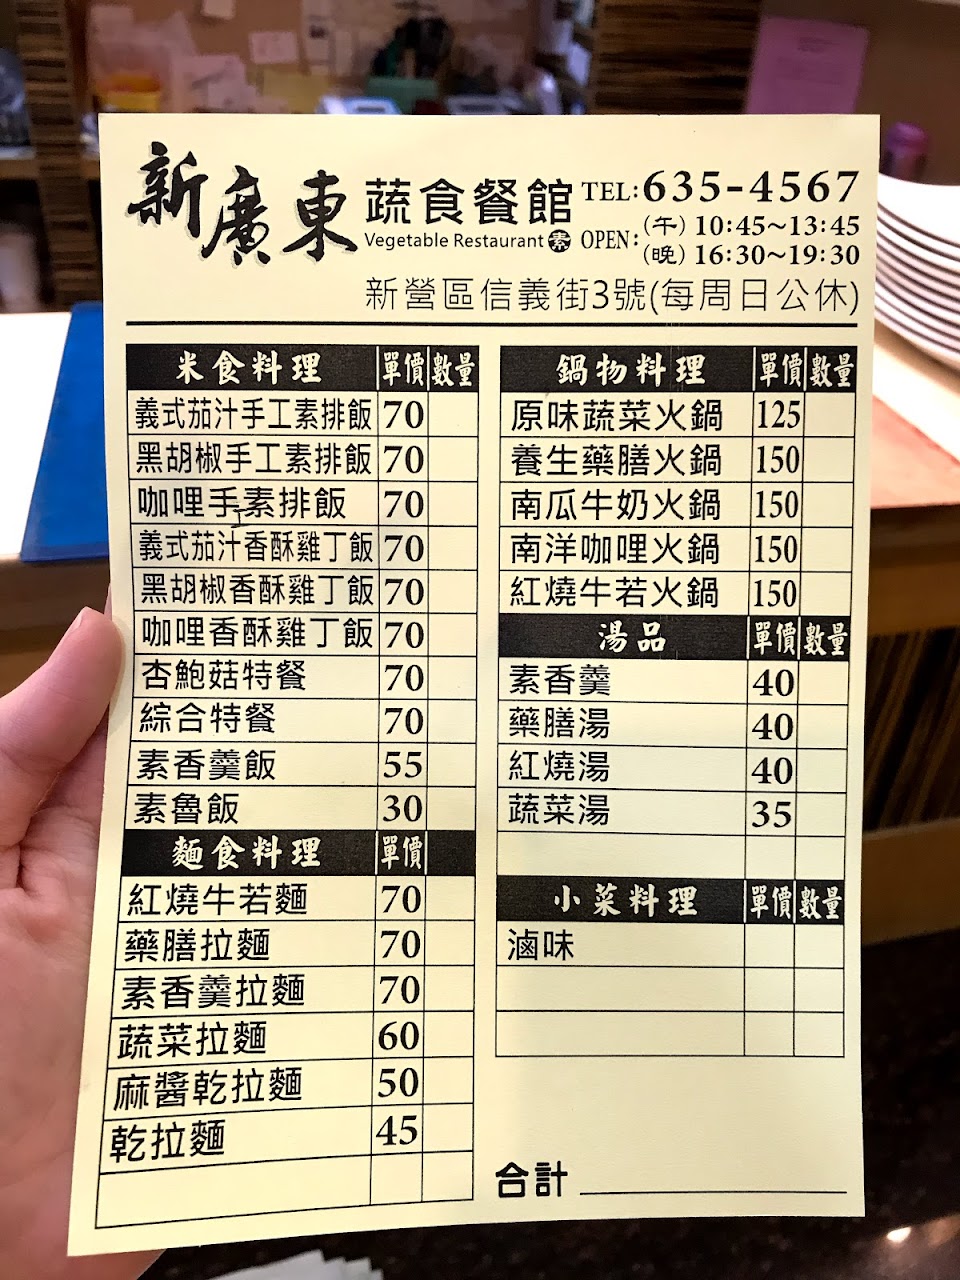 新廣東
蔬食餐館
Vegetable Restaurant 素
TEL:635-4567
OPEN:(午) 10:45~13:45
(晚) 16:30~19:30
新營區信義街3號(每周日公休)
米食料理 單價 數量
義式茄汁手工素排飯 70
黑胡椒手工素排飯 70
咖哩手素排飯 70
工
義式茄汁香酥雞丁飯 70
黑胡椒香酥雞丁飯 70
咖哩香酥雞丁飯 70
杏鮑菇特餐 70
綜合特餐 70
素香羹飯 55
素魯飯 30
麵食料理 單價
紅燒牛若麵 70
藥膳拉麵 70
素香羹拉麵 70
蔬菜拉麵 60
麻醬乾拉麵 50
乾拉麵 45
鍋物料理 單價 數量
原味蔬菜火鍋 125
養生藥膳火鍋 150
南瓜牛奶火鍋 150
南洋咖哩火鍋 150
紅燒牛若火鍋 150
湯品 單價 數量
素香羹 40
藥膳湯 40
紅燒湯 40
蔬菜湯 35
小菜料理 單價 數量
滷味
合計